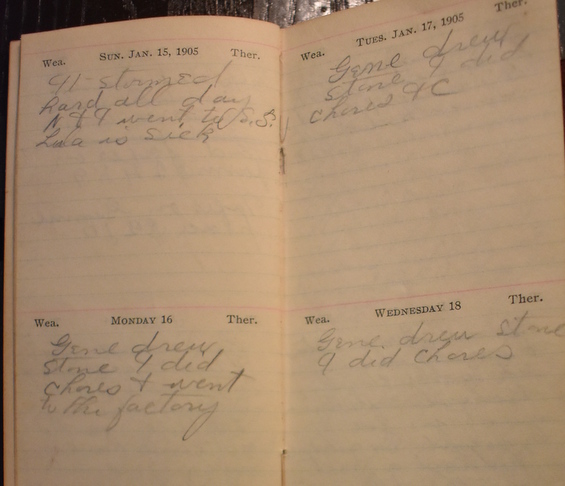 Wea. SUN. JAN. 15, 1905 Ther.
41 - stormed
hard all day
N & I went to S.S.
Lua is sick
Wea. MONDAY 16 Ther.
Gene drew
stone I did
chores & went
to the factory
Wea. TUES. JAN. 17, 1905 Ther.
Gene drew
stone I did
chores &C
Wea. WEDNESDAY 18 Ther.
Gene drew stone
I did chores